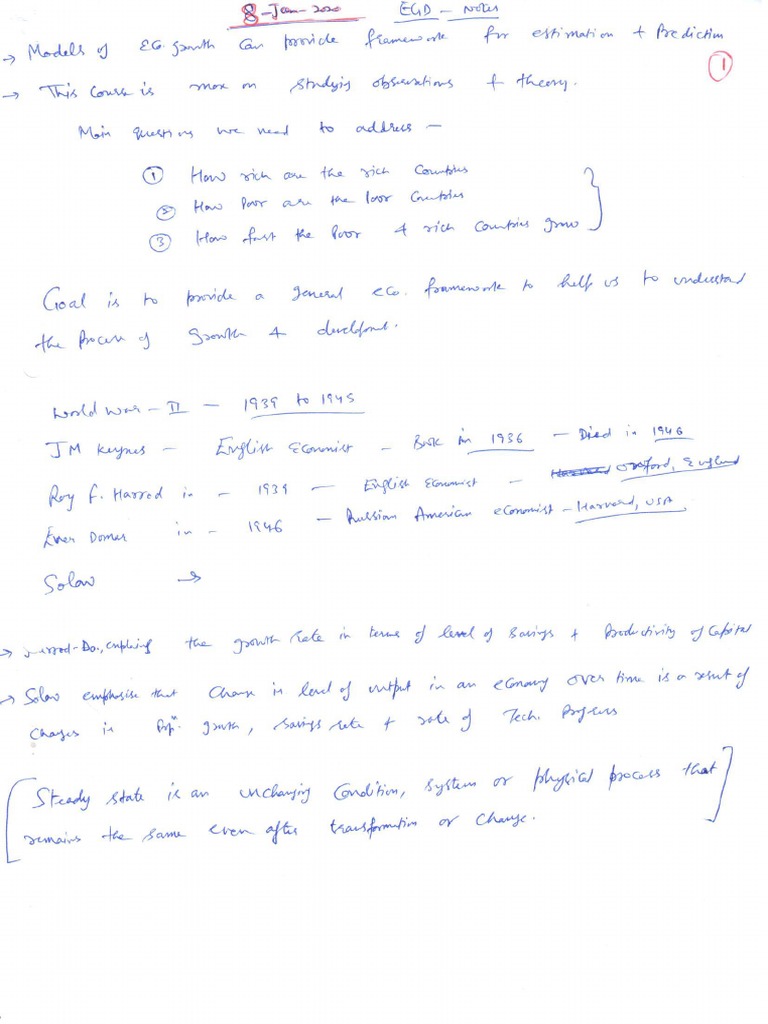 8-Jan-2020 EGD - Notes
→ Models of EG. growth can provide framework for estimation + Prediction
1
→ This course is more on studying observations + theory.
Main questions we need to address -
① How rich are the rich Countries
② How Poor are the Poor Countries
③ How fast the Poor + rich Countries grow
Goal is to provide a general eco. framework to help us to understand
the Process of Growth + development.
World War - II - 1939 to 1945
JM Keynes - English Economist - Book in 1936 - Died in 1946
Roy F. Harrod in - 1939 - English Economist - Oxford, England
Domar in - 1946 - Russian American economist - Harvard, USA
Solow →
→ the growth rate in terms of level of savings + Productivity of Capital
→ Solow emphasise that Change in level of output in an economy over time is a result of
Changes in Popn. growth, savings rate + role of Tech. Progress
[Steady state is an unchanging Condition, system or physical process that
remains the same even after transformation or change.]